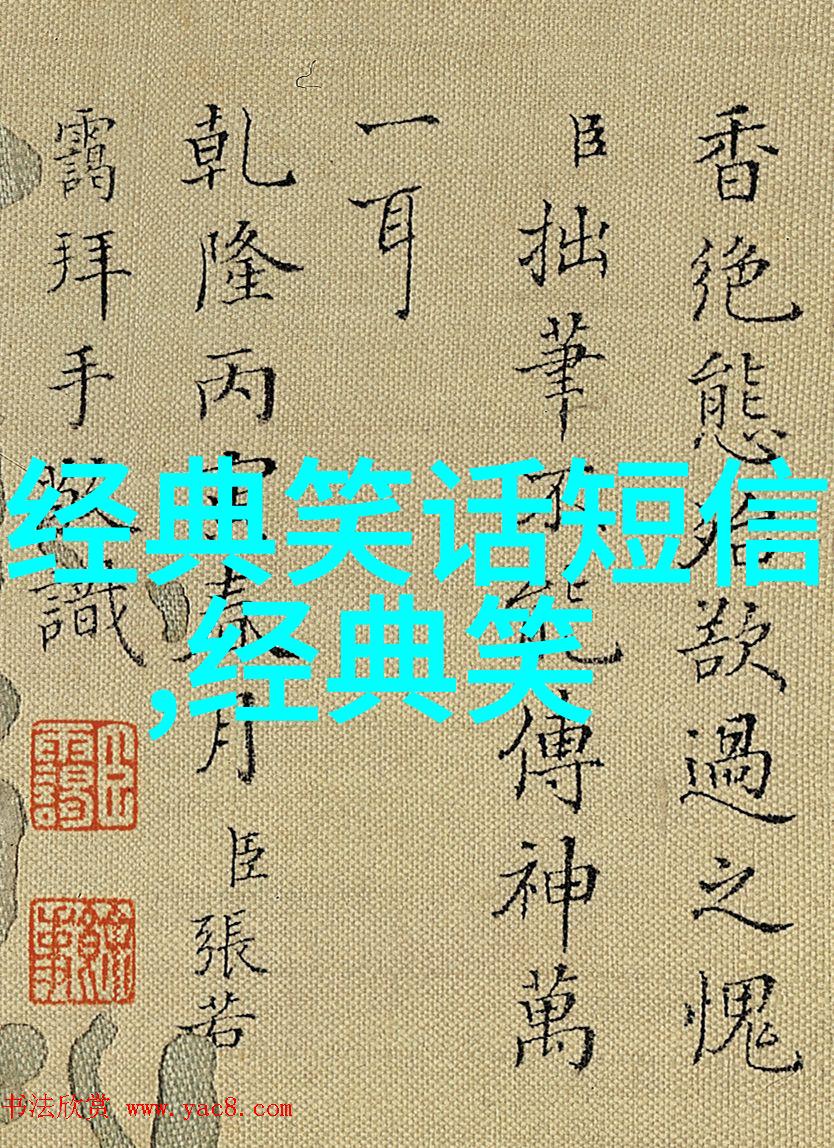 香絶態殆欲過之愧
臣拙筆不能傳神萬
一耳
乾隆丙寅春月臣張若
靄拜手敬識
经典笑话短信
,经典笑
书法欣赏 www.yac8.com